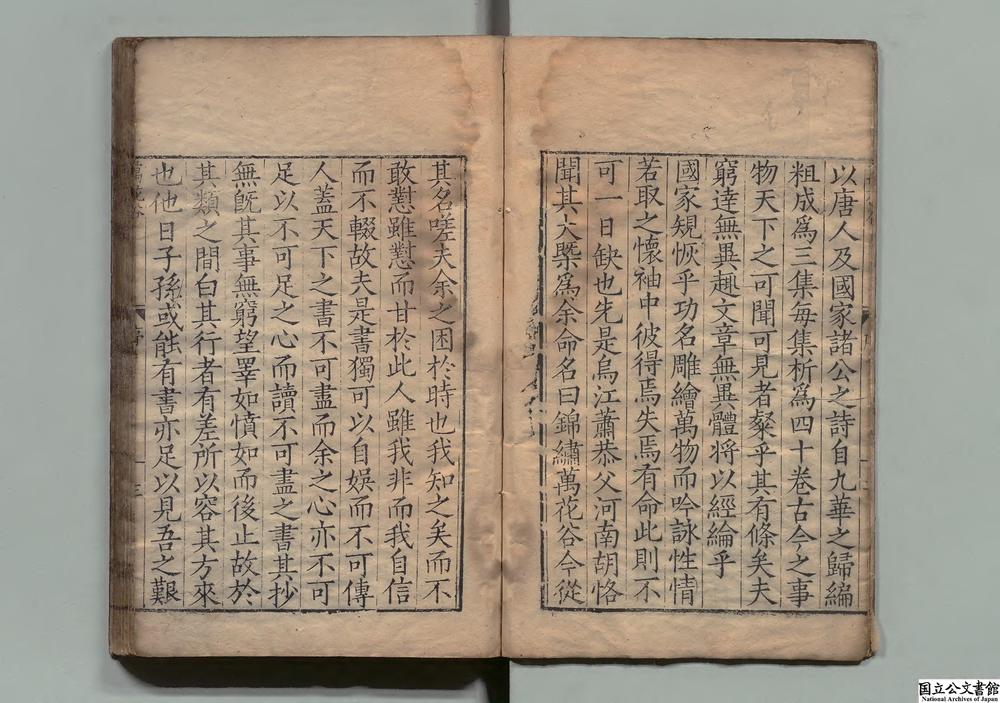 以唐人及國家諸公之詩自九華之歸編
粗成爲三集每集析爲四十卷古今之事
物天下之可聞可見者粲乎其有條矣夫
窮達無異趣文章無異體将以經綸乎
國家規恢乎功名雕繪萬物而吟詠性情
若取之懷袖中彼得焉失焉有命此則不
可一日缺也先是烏江蕭恭父河南胡恪
聞其大槩爲余命名曰錦繡萬花谷今從
其名嗟夫余之困於時也我知之矣而不
敢懟雖懟而甘於此人雖我非而我自信
而不輟故夫是書獨可以自娱而不可傳
人蓋天下之書不可盡而余之心亦不可
足以不可足之心而讀不可盡之書其抄
無旣其事無窮望睪如憤如而後止故於
其類之間白其行者有差所以容其方來
也他日子孫或能有書亦足以見吾之艱
序
三
国立公文書館
National Archives of Japan